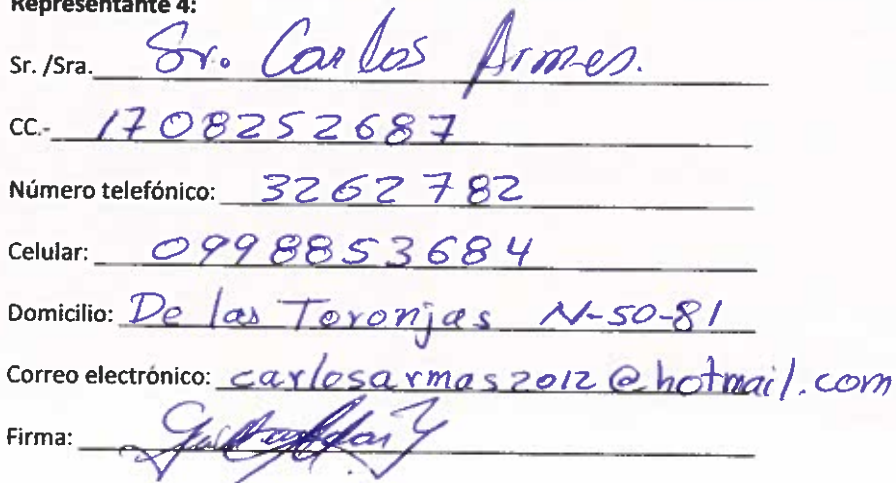 Representante 4:
Sr. /Sra. Sr. Carlos Armes.
CC.- 1708252687
Número telefónico: 3262782
Celular: 0998853684
Domicilio: De las Toronjas N-50-81
Correo electrónico: carlosarmas2012@hotmail.com
Firma: